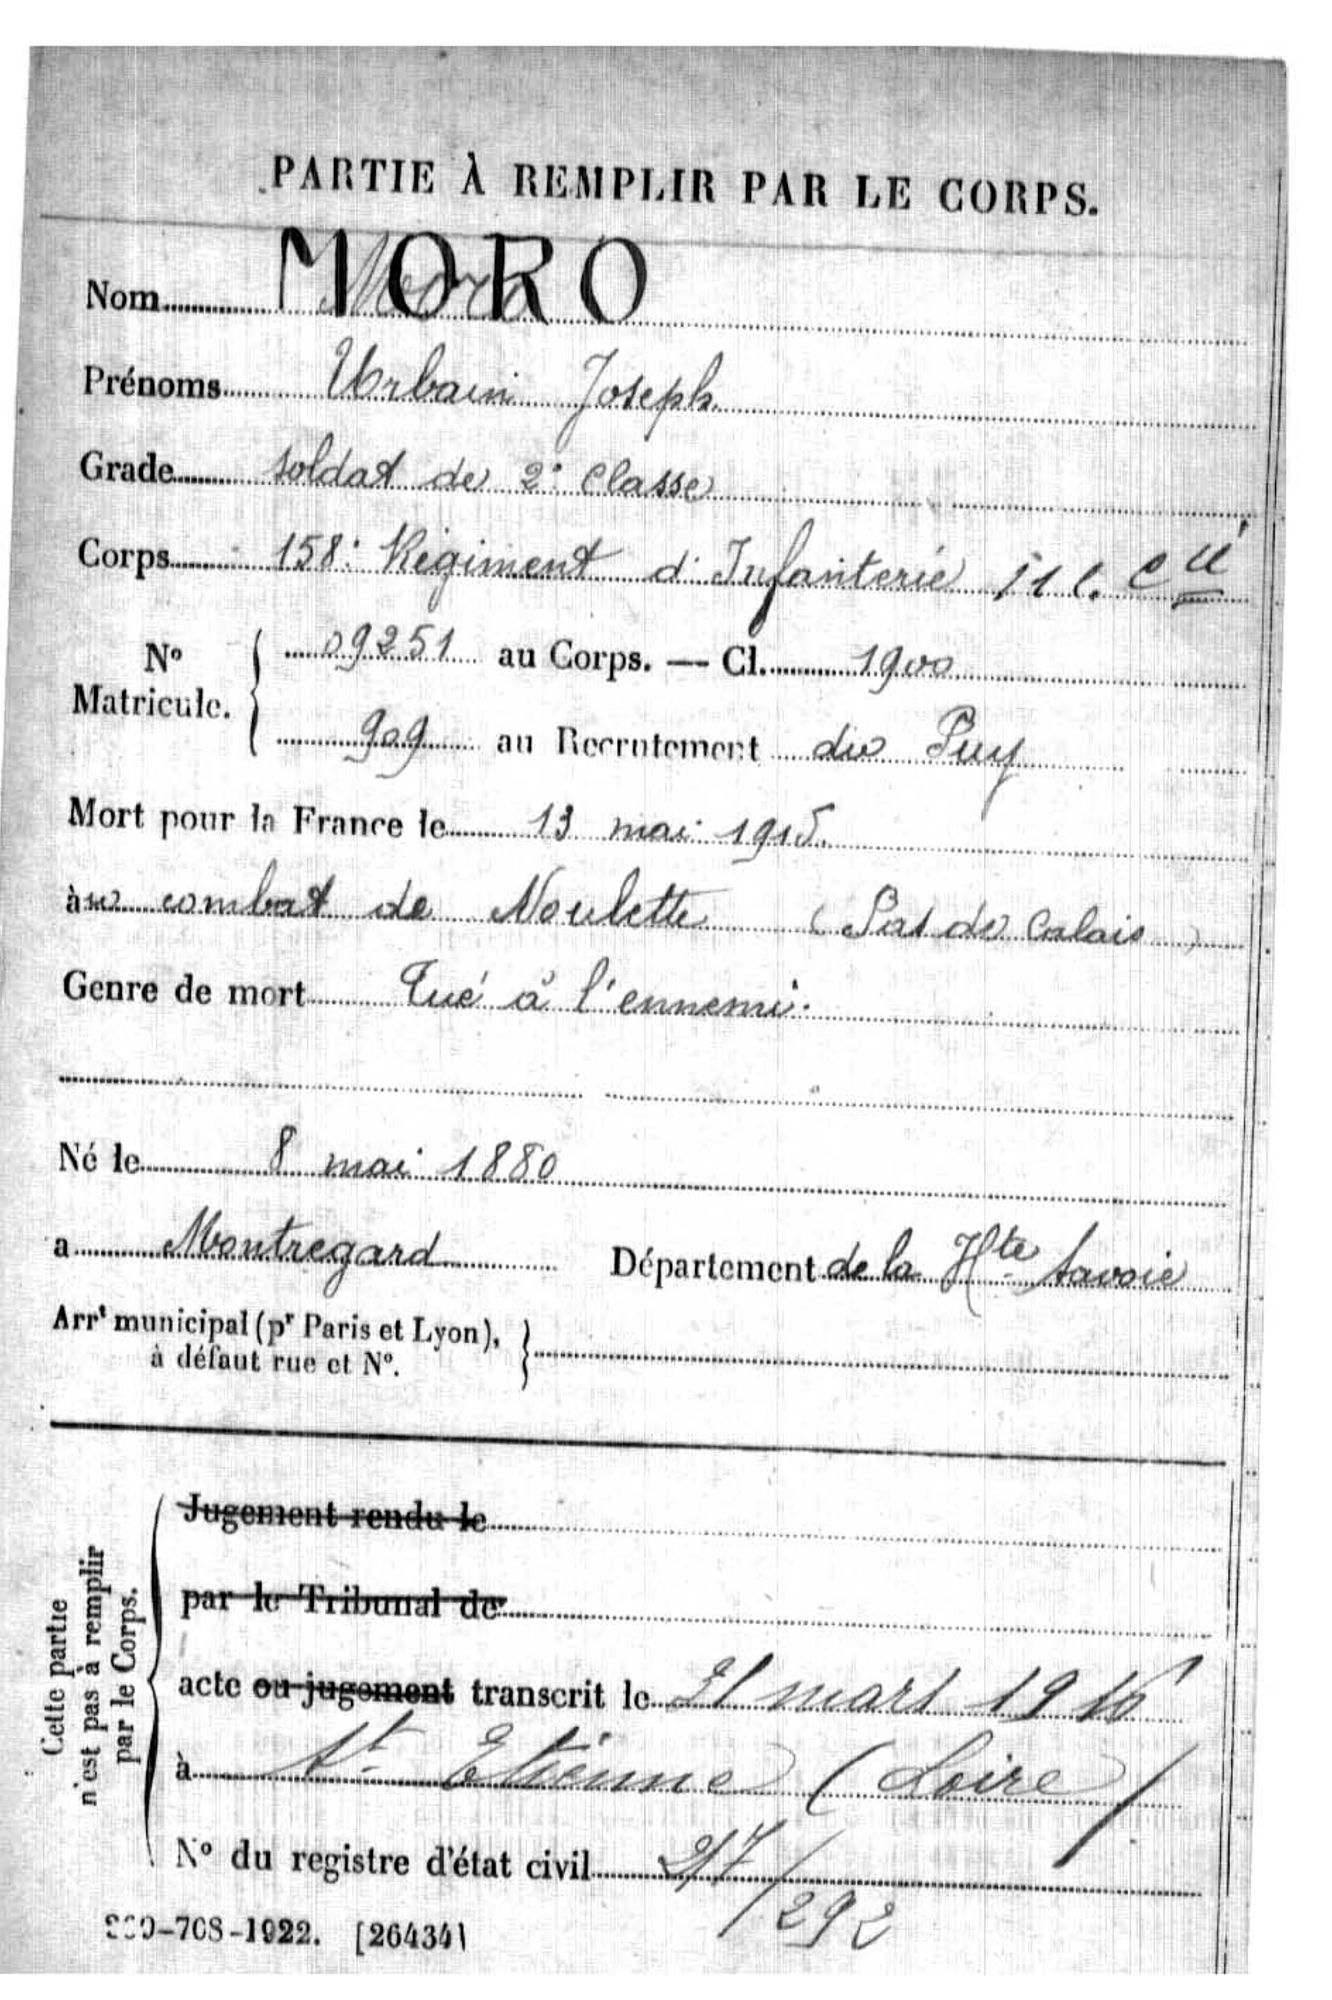 PARTIE À REMPLIR PAR LE CORPS.
Nom MORO
Prénoms Urbain Joseph
Grade soldat de 2e Classe
Corps 158e Régiment d'Infanterie 11e Cie
No Matricule. 09251 au Corps. — Cl. 1900
909 au Recrutement du Puy
Mort pour la France le 13 mai 1915.
àu combat de Noulette (Pas de Calais)
Genre de mort Tué à l'ennemi.
Né le 8 mai 1880
a Montregard Département de la Hte Savoie
Arrt municipal (pr Paris et Lyon),
à défaut rue et No.
Cette partie
n'est pas à remplir
par le Corps.
Jugement rendu le
par le Tribunal de
acte ou jugement transcrit le 21 mars 1916
à St Etienne (Loire)
No du registre d'état civil 217/292
-708-1922. [26434]